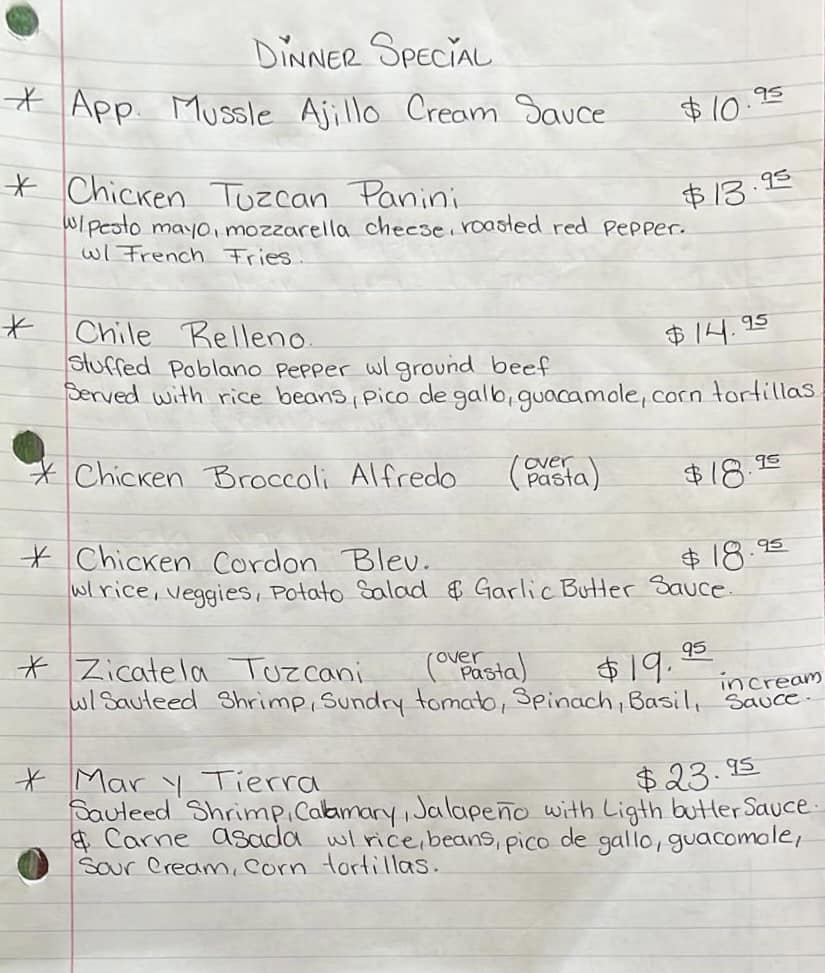 DINNER SPECIAL
* App. Mussle Ajillo Cream Sauce $10.95
* Chicken Tuzcan Panini $13.95
w/pesto mayo, mozzarella cheese, roasted red pepper.
w/ French Fries.
* Chile Relleno. $14.95
Stuffed Poblano pepper w/ ground beef
Served with rice beans, pico de gallo, guacamole, corn tortillas
* Chicken Broccoli Alfredo (over pasta) $18.95
* Chicken Cordon Bleu. $18.95
w/ rice, veggies, Potato Salad & Garlic Butter Sauce.
* Zicatela Tuzcani (over pasta) $19.95
w/ Sauteed Shrimp, Sundry tomato, Spinach, Basil, in cream Sauce.
* Mar y Tierra $23.95
Sauteed Shrimp, Calamary, Jalapeño with Ligth butter Sauce.
& Carne asada w/ rice, beans, pico de gallo, guacomole,
Sour Cream, Corn tortillas.